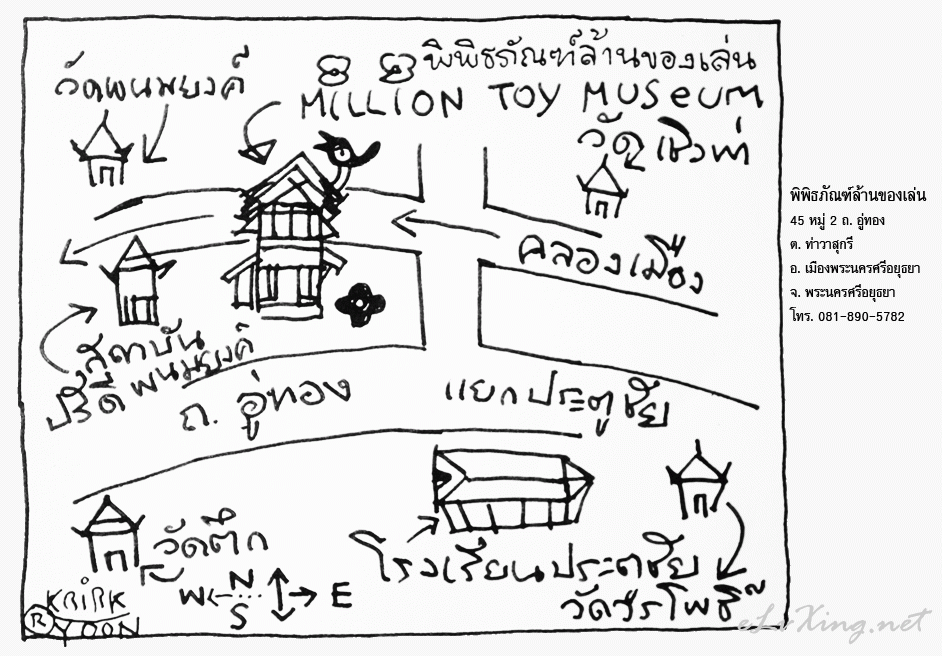 พิพิธภัณฑ์ล้านของเล่น
MILLION TOY MUSEUM
วัดพนมยงค์
วัดเชิงท่า
คลองเมือง
สถาบัน
ปรีดี พนมยงค์
ถ. อู่ทอง
แยกประตูชัย
โรงเรียนประตูชัย
วัดตึก
วัดวรโพธิ์
N
W
E
S
KRIRK
® YOON
พิพิธภัณฑ์ล้านของเล่น
45 หมู่ 2 ถ. อู่ทอง
ต. ท่าวาสุกรี
อ. เมืองพระนครศรีอยุธยา
จ. พระนครศรีอยุธยา
โทร. 081-890-5782
eLvXing.net